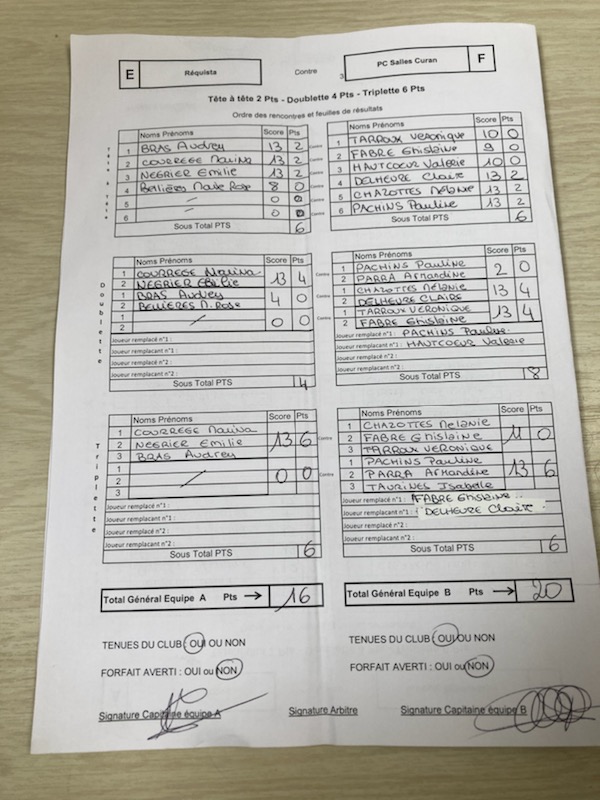 E Réquista Contre 3 PC Salles Curan F
Tête à tête 2 Pts - Doublette 4 Pts - Triplette 6 Pts
Ordre des rencontres et feuilles de résultats
Tête à tête
Noms Prénoms Score Pts
1 BRAS Audrey 13 2 Contre
2 COURREGE Marina 13 2 Contre
3 NEGRIER Emilie 13 2 Contre
4 Bellières Marie Rose 8 0 Contre
5 - 0 0 Contre
6 - 0 0 Contre
Sous Total PTS 6
Noms Prénoms Score Pts
1 TARROUX Véronique 10 0
2 FABRE Ghislaine 9 0
3 HAUTCOEUR Valerie 10 0
4 DELHEURE Claire 13 2
5 CHAZOTTES Mélanie 13 2
6 PACHINS Pauline 13 2
Sous Total PTS 6
Doublette
Noms Prénoms Score Pts
1 COURREGE Marina
2 NEGRIER Emilie 13 4 Contre
1 BRAS Audrey
2 BELLIERES M. Rose 4 0 Contre
1 -
2 0 0 Contre
Joueur remplacé n°1 :
Joueur remplacant n°1 :
Joueur remplacé n°2 :
Joueur remplacant n°2 :
Sous Total PTS 4
Noms Prénoms Score Pts
1 PACHINS Pauline
2 PARRA Amandine 2 0
1 CHAZOTTES Mélanie
2 DELHEURE CLAIRE 13 4
1 TARROUX VERONIQUE
2 FABRE Ghislaine 13 4
Joueur remplacé n°1 : PACHINS Pauline.
Joueur remplacant n°1 : HAUTCOEUR Valerie
Joueur remplacé n°2 :
Joueur remplacant n°2 :
Sous Total PTS 8
Triplette
Noms Prénoms Score Pts
1 COURREGE Marina
2 NEGRIER Emilie 13 6 Contre
3 BRAS Audrey
1
2 - 0 0 Contre
3
Joueur remplacé n°1 :
Joueur remplacant n°1 :
Joueur remplacé n°2 :
Joueur remplacant n°2 :
Sous Total PTS 6
Noms Prénoms Score Pts
1 CHAZOTTES Melanie
2 FABRE Ghislaine 11 0
3 TARROUX VERONIQUE
1 PACHINS Pauline
2 PARRA Armandine 13 6
3 TAURINES Isabelle
Joueur remplacé n°1 : FABRE Ghislaine.
Joueur remplacant n°1 : DELHEURE Claire.
Joueur remplacé n°2 :
Joueur remplacant n°2 :
Sous Total PTS 6
Total Général Equipe A Pts → 16
Total Général Equipe B Pts → 20
TENUES DU CLUB : OUI OU NON
TENUES DU CLUB : OUI OU NON
FORFAIT AVERTI : OUI ou NON
FORFAIT AVERTI : OUI ou NON
Signature Capitaine équipe A Signature Arbitre Signature Capitaine équipe B